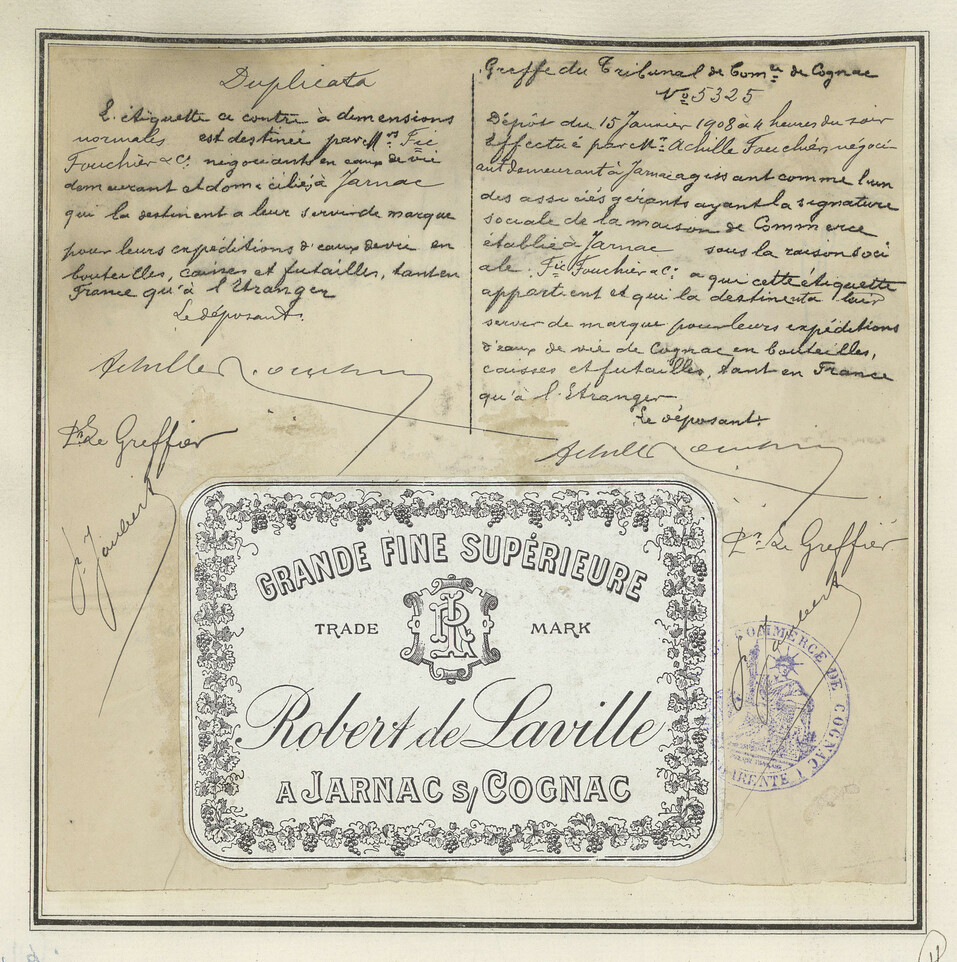 Duplicata
L'étiquette ci contre à dimensions
normales est destinée par Mrs Fic
Fouchier & Cie négociants en eaux de vie
demeurant et domiciliés à Jarnac
qui la destinent a leur servir de marque
pour leurs expéditions d'eaux de vie en
bouteilles, caisses et futailles, tant en
France qu'à l'Etranger
Le déposant.
Achille Fouchier
Pr Le Greffier
J. Joubert
Greffe du Tribunal de Comce de Cognac
No 5325
Dépôt du 15 Janvier 1908 à 4 heures du soir
Effectué par Mr Achille Fouchier, négoci
ant demeurant à Jarnac agissant comme l'un
des associés gérants ayant la signature
sociale de la maison de Commerce
établie à Jarnac sous la raison soci
ale Fic Fouchier & Cie a qui cette étiquette
appartient et qui la destine a lui
servir de marque pour leurs expéditions
d'eaux de vie de Cognac en bouteilles,
caisses et futailles, tant en France
qu'à l'Etranger
Le déposant.
Achille Fouchier
Pr Le Greffier
J. Joubert
GRANDE FINE SUPÉRIEURE
TRADE MARK
Robert de Laville
A JARNAC S/ COGNAC
COMMERCE DE COGNAC